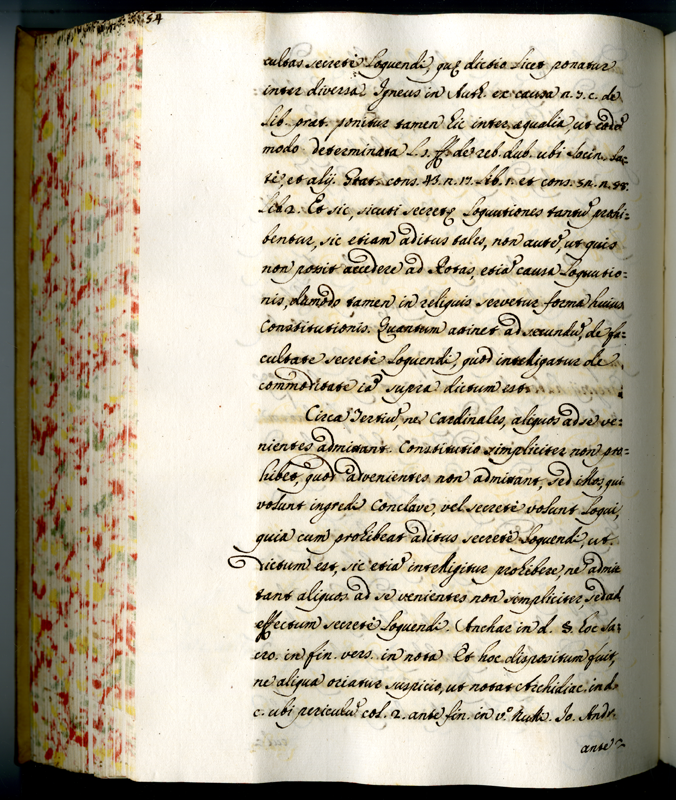 54
cultas secretè loquendi, quę dictio licet ponatur
inter diversa Igneus in Auth. ex causa n. 7. c. de
lib. præt. ponitur tamen hic inter æqualia, ut eodē
modo determinata l. 1. ff. de reb. dub. ubi Socin.
et alij. Grat. cons. 43. n. 17. lib. 1. et cons. 51. n. 88.
lib. 2. Et sic, sicuti secretę loquutiones tantū prohi=
bentur, sic etiam aditus tales, non autē, ut quis
non possit accedere ad Rotas, etiā causa loquutio=
nis, dūmodo tamen in reliquis servetur forma huius
Constitutionis. Quantum attinet ad secundū, de fa=
cultate secretè loquendi, quòd intelligatur de
commoditate iā supra dictum est.
Circa Tertiū, ne Cardinales, aliquos ad se ve=
nientes admittant. Constitutio simpliciter non pro=
hibet, quòd advenientes non admittant, sed illos, qui
volunt ingredi Conclave, vel secretè volunt loqui,
quia cum prohibeat aditus secretè loquendi, ut
dictum est, sic etiā intelligitur prohibere, ne admit
tant aliquos ad se venientes non simpliciter, sed ad
effectum secretè loquendi. Anchar. in d. §. hoc sa=
cro. in fin. vers. in nota. Et hoc dispositum fuit,
ne aliqua oriatur suspicio, ut notat Archidiac. in d.
c. ubi periculū col. 2. ante fin. in vº. Nulli. Jo. Andr.
ante